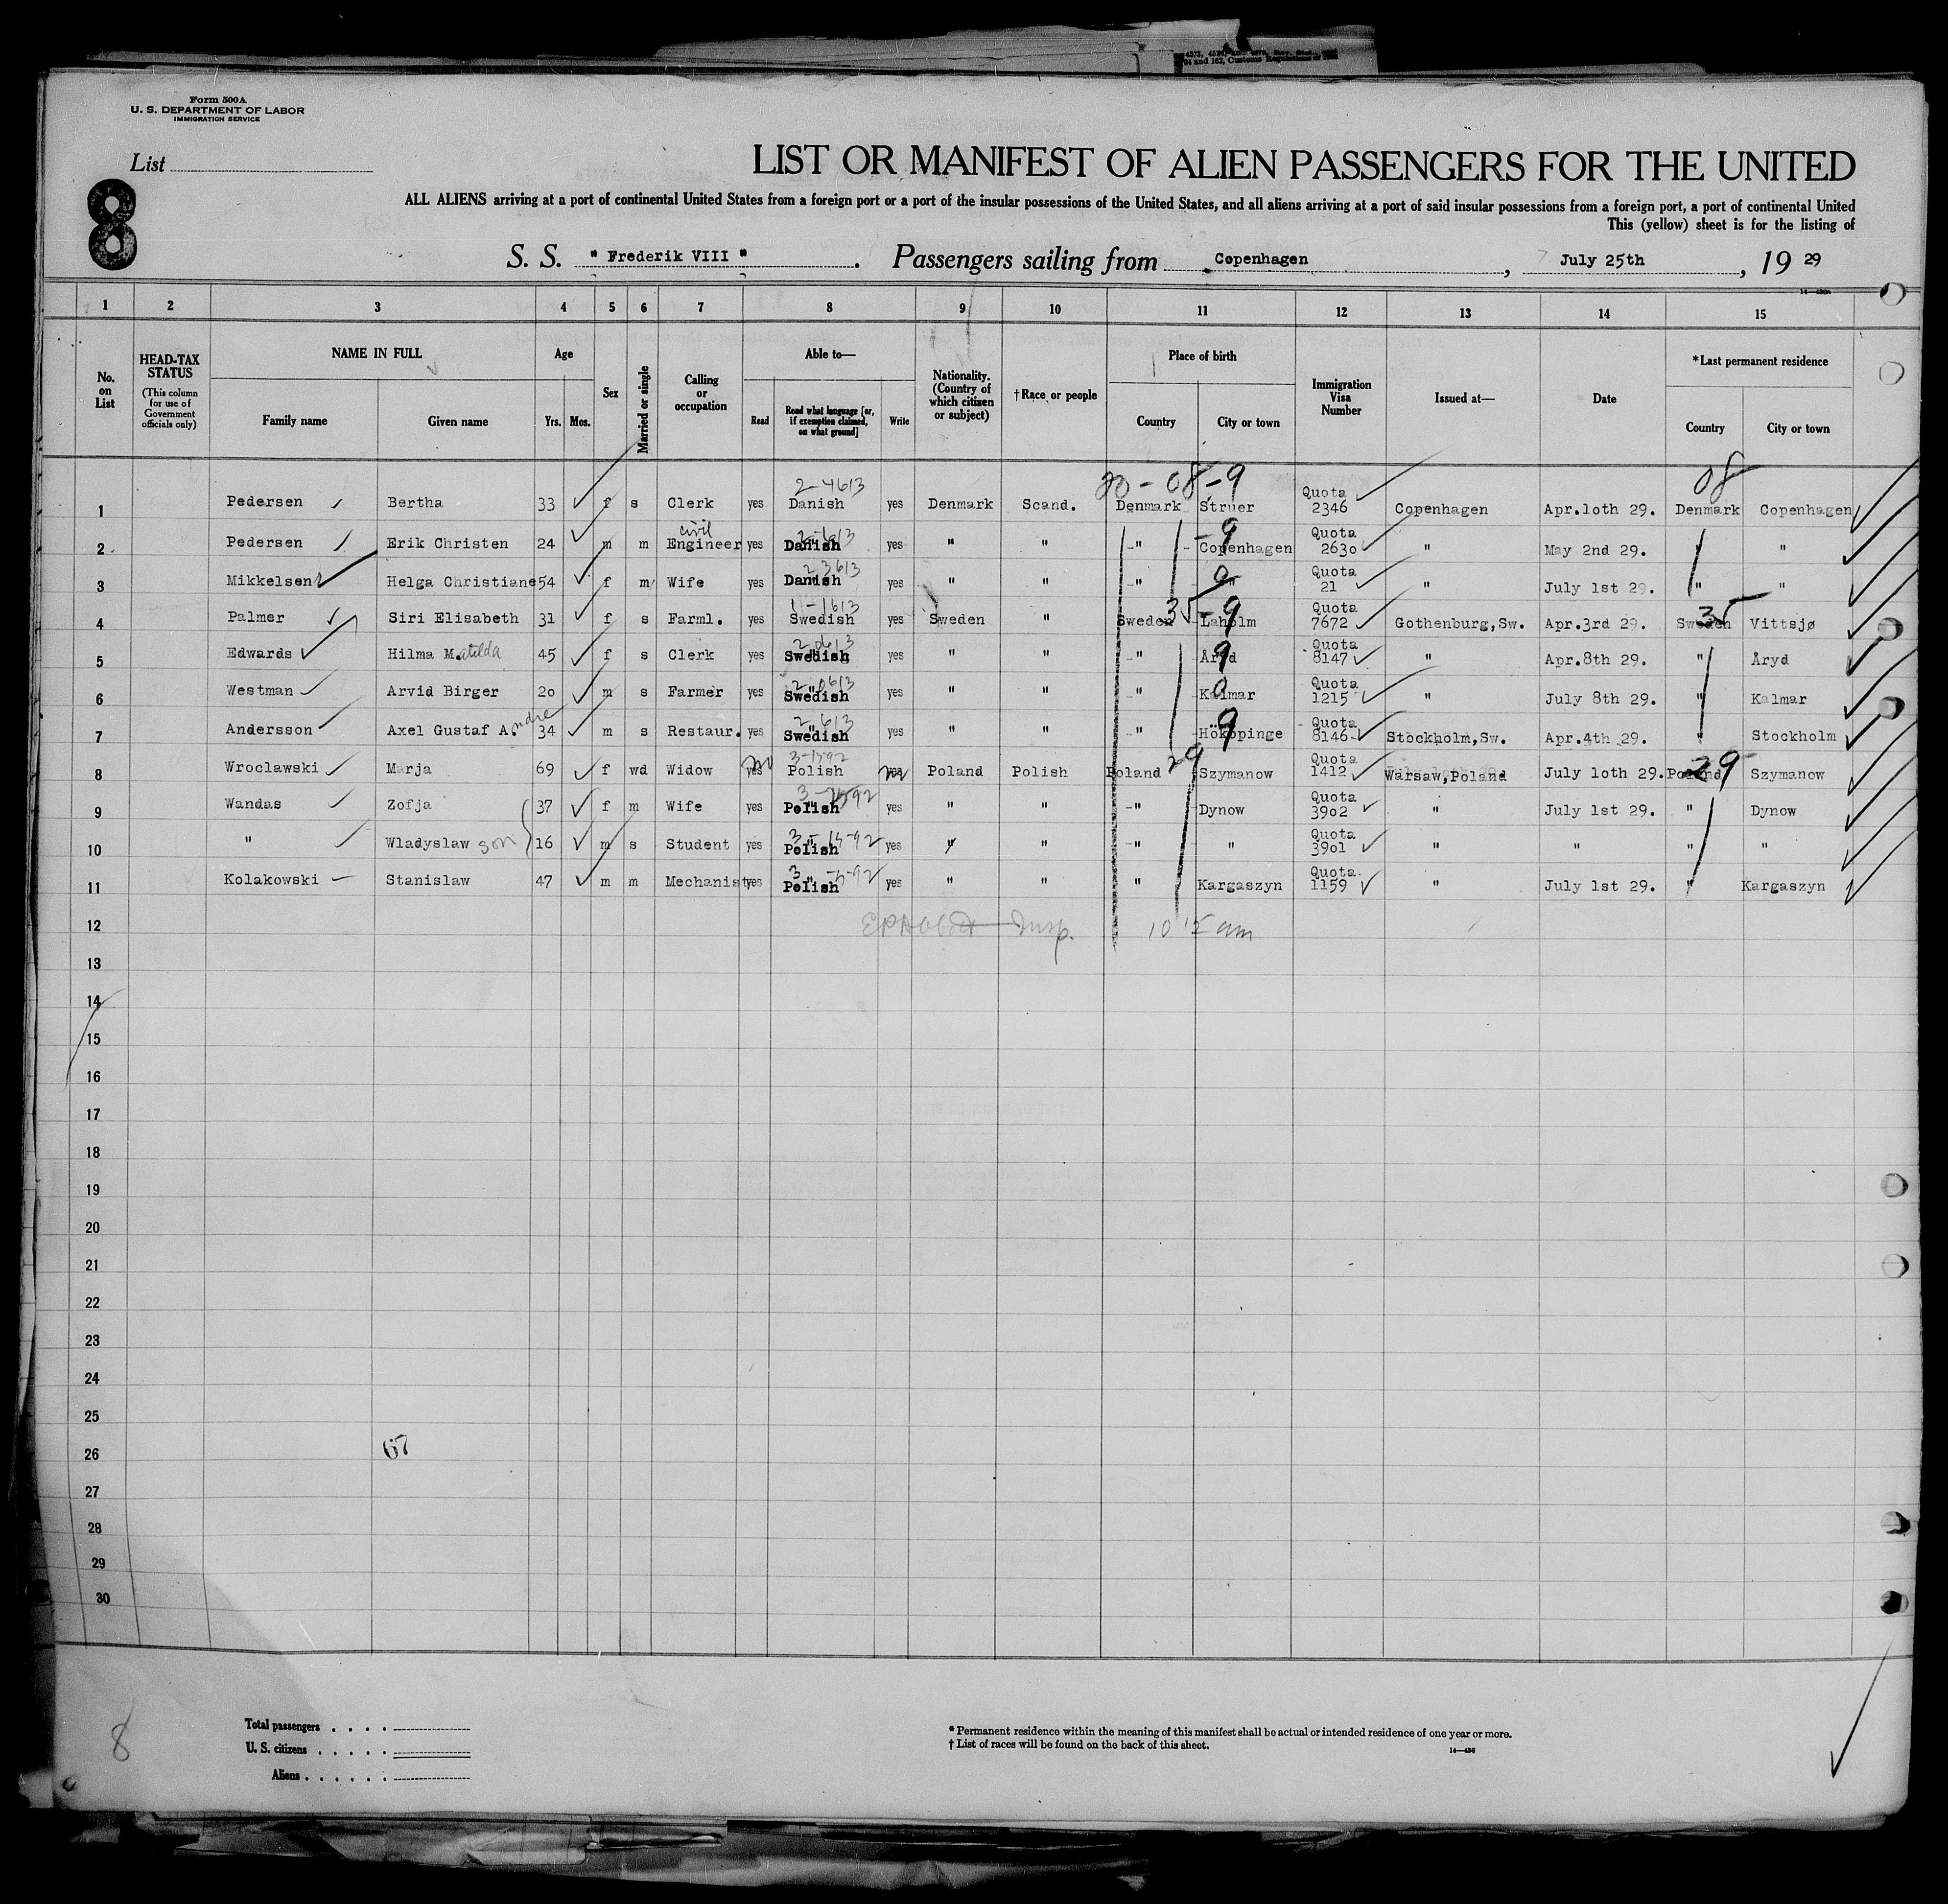 4573, 4574, and 4575, Rev. Stat.
94 and 162, Customs Regulations of
Form 500A
U. S. DEPARTMENT OF LABOR
IMMIGRATION SERVICE
List
8
LIST OR MANIFEST OF ALIEN PASSENGERS FOR THE UNITED
ALL ALIENS arriving at a port of continental United States from a foreign port or a port of the insular possessions of the United States, and all aliens arriving at a port of said insular possessions from a foreign port, a port of continental United
This (yellow) sheet is for the listing of
S. S. " Frederik VIII " . Passengers sailing from Copenhagen , July 25th , 19 29
1 2 3 4 5 6 7 8 9 10 11 12 13 14 15
No. on List
HEAD-TAX STATUS
(This column for use of Government officials only)
NAME IN FULL
Family name Given name
Age
Yrs. Mos.
Sex
Married or single
Calling or occupation
Able to—
Read Read what language [or, if exemption claimed, on what ground] Write
Nationality. (Country of which citizen or subject)
†Race or people
Place of birth
Country City or town
Immigration Visa Number
Issued at—
Date
*Last permanent residence
Country City or town
2-4613 08-9 08
1 Pedersen Bertha 33 f s Clerk yes Danish yes Denmark Scand. Denmark Struer Quota 2346 Copenhagen Apr.1oth 29. Denmark Copenhagen
2 Pedersen Erik Christen 24 m m civil Engineer yes Danish yes " " " Copenhagen 9 Quota 263o " May 2nd 29. " "
3 Mikkelsen Helga Christiane 54 f m Wife yes Danish 2 3613 yes " " " " 9 Quota 21 " July 1st 29. " "
4 Palmer Siri Elisabeth 31 f s Farml. yes Swedish 1-1613 yes Sweden " Sweden 35-9 Laholm Quota 7672 Gothenburg,Sw. Apr.3rd 29. Sweden 35 Vittsjø
5 Edwards Hilma Matilda 45 f s Clerk yes Swedish yes " " " Åryd 9 Quota 8147 " Apr.8th 29. " Åryd
6 Westman Arvid Birger 2o m s Farmer yes Swedish yes " " " Kalmar Quota 1215 " July 8th 29. " Kalmar
7 Andersson Axel Gustaf A.ndre 34 m s Restaur. yes Swedish 2 613 yes " " " Hököpinge 9 Quota 8146 Stockholm,Sw. Apr.4th 29. Stockholm
8 Wroclawski Marja 69 f wd Widow yes no Polish yes no Poland Polish Poland 29 Szymanow Quota 1412 Warsaw,Poland July 1oth 29. Poland 29 Szymanow
9 Wandas Zofja 37 f m Wife yes Polish yes " " " Dynow Quota 39o2 " July 1st 29. " Dynow
10 " Wladyslaw son 16 m s Student yes Polish yes " " " " Quota 39o1 " " " "
11 Kolakowski Stanislaw 47 m m Mechanist yes Polish yes " " " Kargaszyn Quota 1159 " July 1st 29. " Kargaszyn
12 Insp. 10 15 am
13
14
15
16
17
18
19
20
21
22
23
24
25
26 67
27
28
29
30
8
Total passengers . . . .
U. S. citizens . . . . .
Aliens . . . . . .
* Permanent residence within the meaning of this manifest shall be actual or intended residence of one year or more.
† List of races will be found on the back of this sheet.
14—436